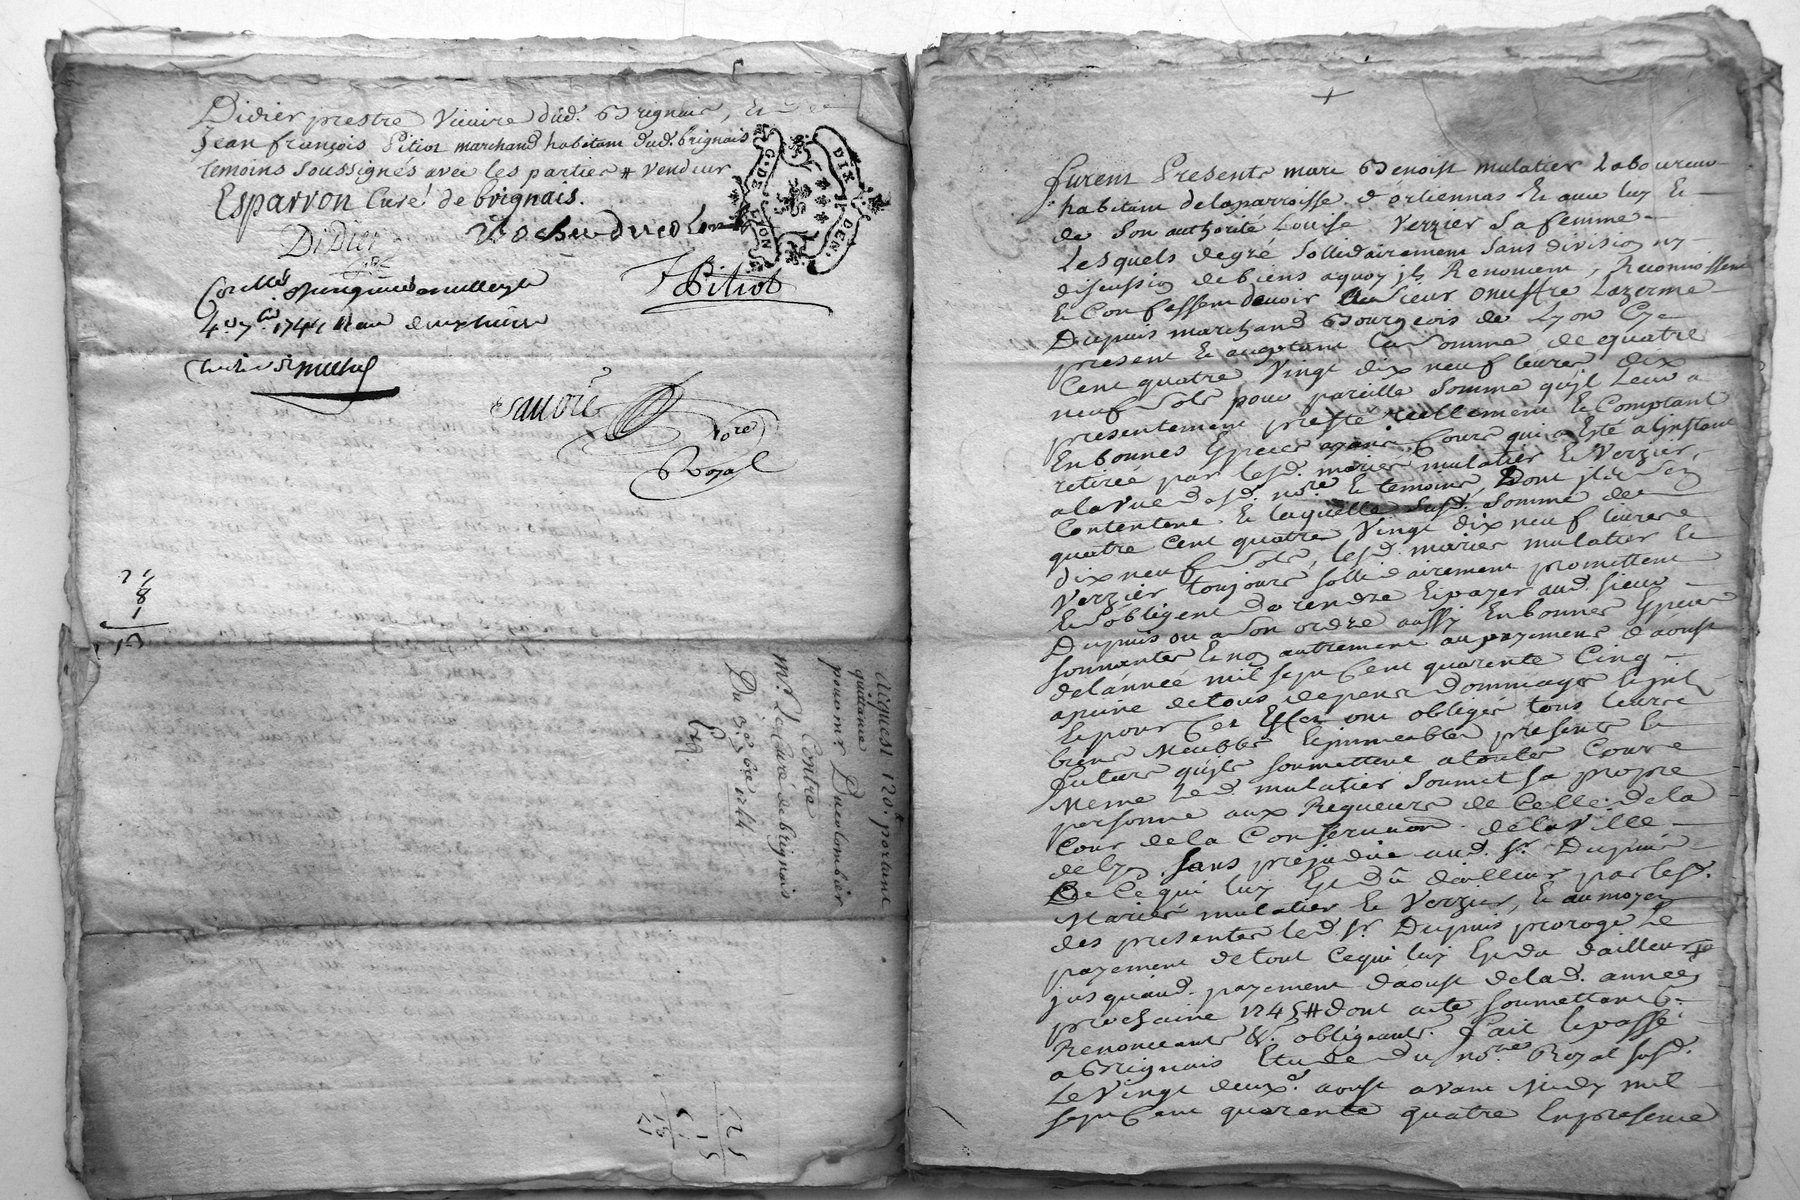 Didier prestre Vicaire dud. Brignais, Et
Jean françois Pitiot marchand habitant dud. brignais
temoins soussignés avec les parties # vendeur
Esparron Curé de brignais.
Didier
J Pitiot
G. DE LYON
DIX DEN.
sauvore
Nore
Royal
8
1
acquest 120.# portant
quittance
pour mr Ducolombier
Contra
mr. Le Curé de brignais
Du 3e 1744
Furent Presents marc Benoist mulatier Laboureur
habitant de la parroisse d'orliennas Et avec luy Et
de Son authorité Louise Verzier Sa femme
Lesquels de gré Sollidairement Sans division ny
discussion de biens a quoy ils Renoncent, Reconnoissent
Et Confessent devoir au Sieur Onuffre Lazerme
Dupuis marchand Bourgeois de Lyon Cy
present Et acceptant la Somme de quatre
Cent quatre Vingt dix neuf livres dix
neuf Sols pour pareille Somme qu'il Leur a
presentement presté reellement Et Comptant
En bonnes Especes ayant Cours qui a Esté a L'instant
retirée par lesd. mariés mulatier Et Verzier,
a la vue dud. nore. Et temoins, Dont ils Se
Contentent. Et laquelle susd. Somme de
quatre Cent quatre Vingt dix neuf livres
dix neuf Sols, lesd. mariés mulatier Et
Verzier toujours sollidairement promettent
Et S'obligent de rendre Et payer aud. Sieur
Dupuis ou a Son ordre aussy En bonnes Especes
sonnantes Et non autrement au payement d'aoust
de l'année mil sept Cent quarente Cinq
a peine de tous depens dommages
Et pour Cet Effet ont obligés tous leurs
biens Meubles Et immeubles presents Et
futurs qu'ils soumettent a toutes Cours
Meme Led. mulatier Soumet Sa propre
personne aux Rigueurs de Celle de la
Cour de la Conservation de la ville
de Lyon Sans prejudice aud. Sr. Dupuis
De Ce qui luy Est dû d'ailleurs par lesd.
Mariés mulatier Et Verzier, Et au moyen
des presentes led. Sr. Dupuis proroge Le
payement de tout Ce qui luy Est du d'ailleurs
jusqu'aud. payement d'aoust de lad. année
prochaine 1745 # dont acte soumettants
Renonceants &. obligeants. Fait Et passé
a Brignais Etude du nore Royal susd.
Le Vingt deuxe. aoust avant Midy mil
sept Cent quarente quatre En presence